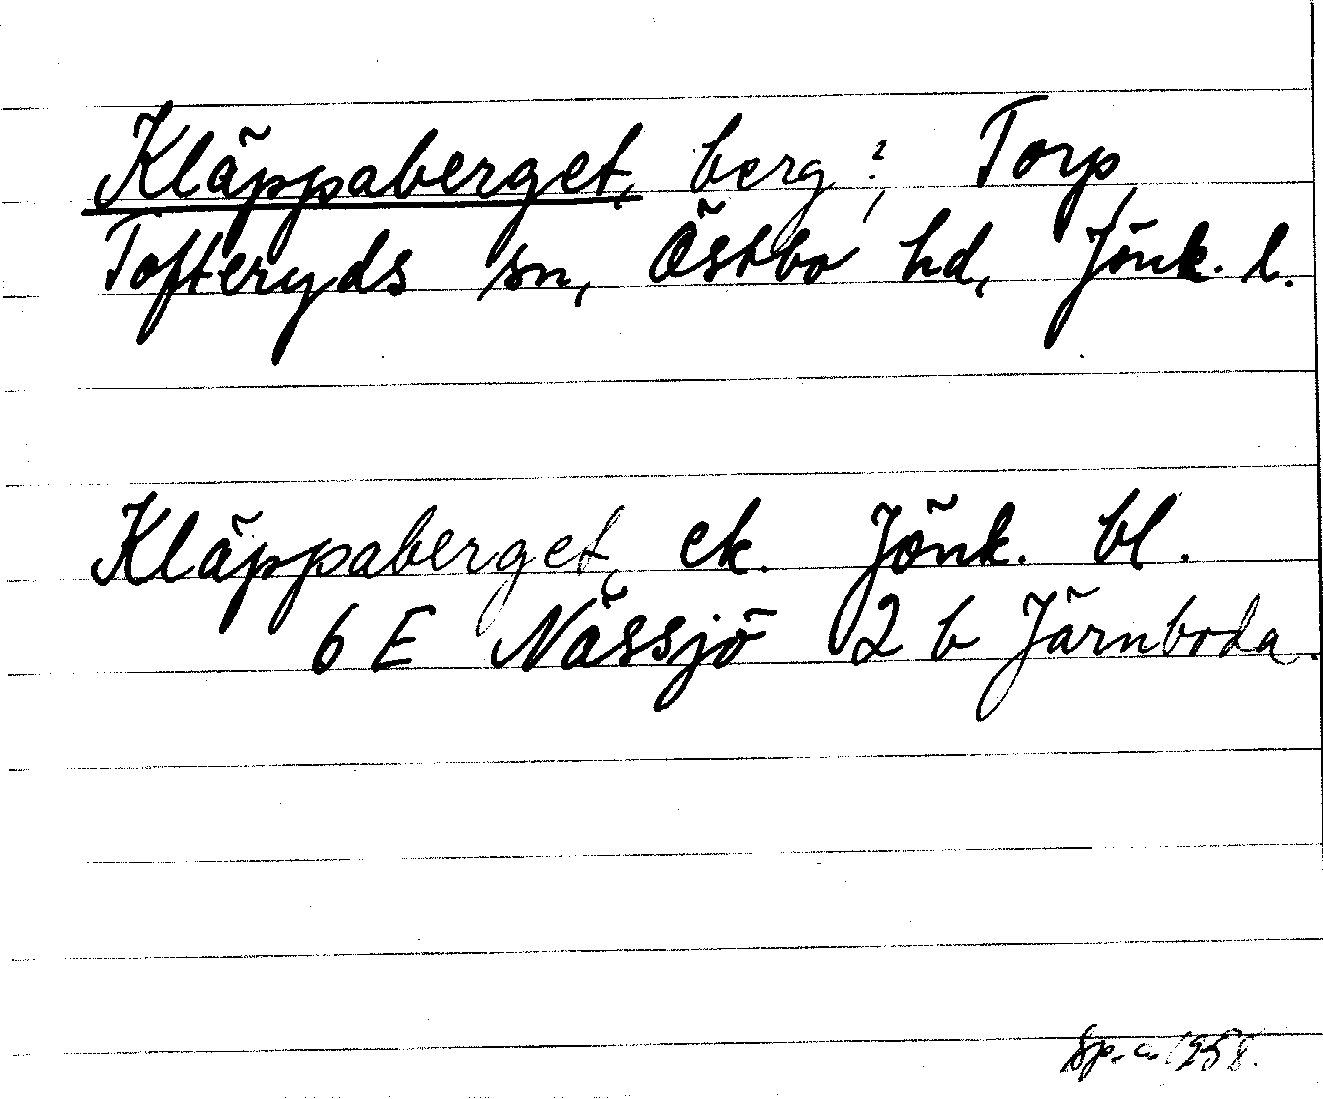 Kläppaberget, berg?, Torp,
Tofteryds sn, Östbo hd, Jönk. l.
Kläppaberget, ek. Jönk. bl.
6 E Nässjö 2 b Järnboda.
1958.